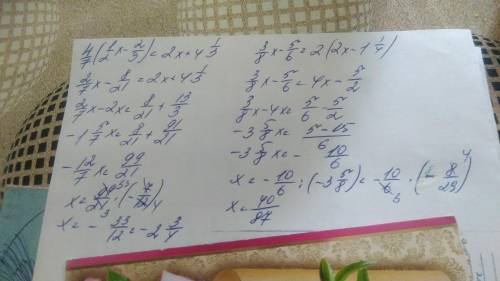 4/7(1/2x-2/3)=2x+4 1/3
2/7x-8/21=2x+4 1/3
2/7x-2x=8/21+13/3
-1 5/7x=8/21+91/21
-12/7x=99/21
x=99/21·(-7/12)
x=-33/12=-2 3/4
3/8x-5/6=2(2x-1 1/4)
3/8x-5/6=4x-5/2
3/8x-4x=5/6-5/2
-3 5/8x=5-15/6
-3 5/8x=-10/6
x=-10/6:(-3 5/8)=-10/6·(-8/29)
x=40/87